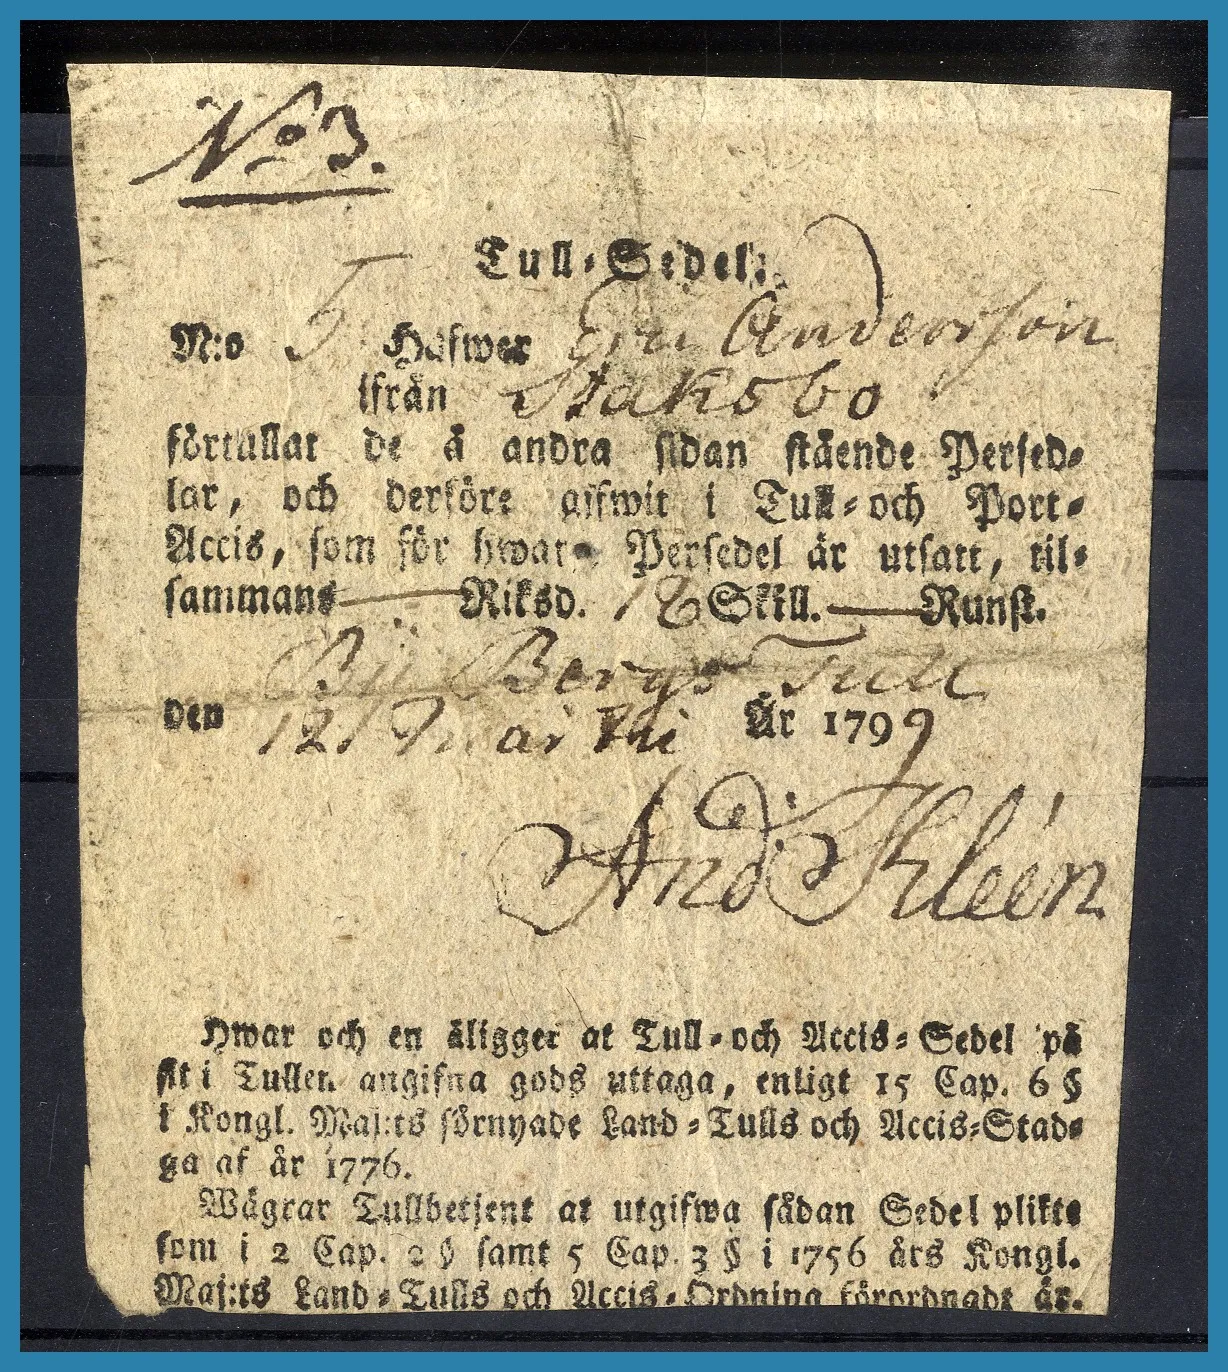 No 3.
Tull-Sedel:
N:o 5 Hafwer Eric Anderson
ifrån Staksbo
förtullat de å andra sidan stående Persed-
lar, och derföre gifwit i Tull- och Port-
Accis, som för hwar Persedel är utsatt, til-
sammans — Riksd. 12 Skill. — Runst.
Bergs Tull
den 12 Martii År 1799
And Kleén
Hwar och en åligger at Tull- och Accis-Sedel på
sit i Tullen angifna gods uttaga, enligt 15 Cap. 6 §
i Kongl. Maj:ts förnyade Land-Tulls och Accis-Stad-
ga af år 1776.
Wägrar Tullbetjent at utgifwa sådan Sedel plikte
som i 2 Cap. 2 § samt 5 Cap. 3 § i 1756 års Kongl.
Maj:ts Land-Tulls och Accis-Ordning förordnadt är.